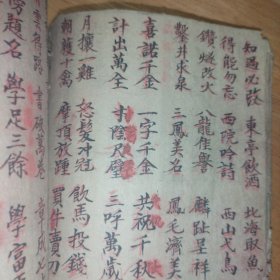 知過必改 東亭飲酒 北海取魚
得能勿忘 西窓吟詩 西山弋鳥
鑽燧改火 八龍佳譽 麟趾呈祥
鑿井求泉 三鳳美名 鳳毛濟
喜諾千金 一字千金 共祝千秋
計出萬全 寸陰尺璧 三呼萬歲
月攘一雞 怒髮冲冠 飲馬投錢
朝獲十禽 摩頂放踵 買牛賣刀
題名 學足三餘 學富
書破萬卷